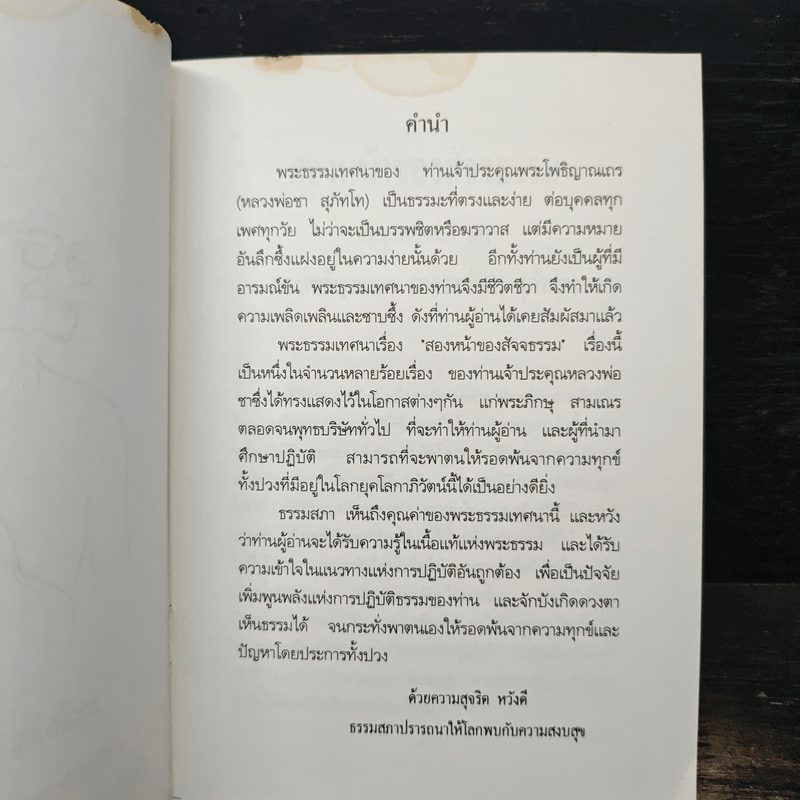 คำนำ
พระธรรมเทศนาของ ท่านเจ้าประคุณพระโพธิญาณเถร
(หลวงพ่อชา สุภัทโท) เป็นธรรมะที่ตรงและง่าย ต่อบุคคลทุก
เพศทุกวัย ไม่ว่าจะเป็นบรรพชิตหรือฆราวาส แต่มีความหมาย
อันลึกซึ้งแฝงอยู่ในความง่ายนั้นด้วย อีกทั้งท่านยังเป็นผู้ที่มี
อารมณ์ขัน พระธรรมเทศนาของท่านจึงมีชีวิตชีวา จึงทำให้เกิด
ความเพลิดเพลินและซาบซึ้ง ดังที่ท่านผู้อ่านได้เคยสัมผัสมาแล้ว
พระธรรมเทศนาเรื่อง "สองหน้าของสัจจธรรม" เรื่องนี้
เป็นหนึ่งในจำนวนหลายร้อยเรื่อง ของท่านเจ้าประคุณหลวงพ่อ
ชาซึ่งได้ทรงแสดงไว้ในโอกาสต่างๆกัน แก่พระภิกษุ สามเณร
ตลอดจนพุทธบริษัททั่วไป ที่จะทำให้ท่านผู้อ่าน และผู้ที่นำมา
ศึกษาปฏิบัติ สามารถที่จะพาตนให้รอดพ้นจากความทุกข์
ทั้งปวงที่มีอยู่ในโลกยุคโลกาภิวัตน์นี้ได้เป็นอย่างดียิ่ง
ธรรมสภา เห็นถึงคุณค่าของพระธรรมเทศนานี้ และหวัง
ว่าท่านผู้อ่านจะได้รับความรู้ในเนื้อแท้แห่งพระธรรม และได้รับ
ความเข้าใจในแนวทางแห่งการปฏิบัติอันถูกต้อง เพื่อเป็นปัจจัย
เพิ่มพูนพลังแห่งการปฏิบัติธรรมของท่าน และจักบังเกิดดวงตา
เห็นธรรมได้ จนกระทั่งพาตนเองให้รอดพ้นจากความทุกข์และ
ปัญหาโดยประการทั้งปวง
ด้วยความสุจริต หวังดี
ธรรมสภาปรารถนาให้โลกพบกับความสงบสุข